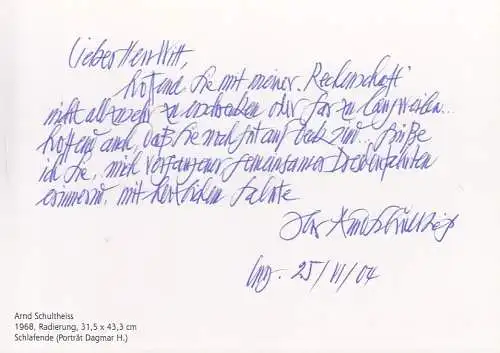 Lieber Herr Witt,
hoffend, Sie mit meiner „Rechenschaft“
nicht allzusehr zu erschrecken oder gar zu langweilen..
hoffend auch, daß Sie noch gut auf sind.. grüße
ich Sie, mich vergangener gemeinsamer
erinnernd, mit herzlichem Salute
Ihr Arnd Schultheiß
25/VI/04
Arnd Schultheiss
1968, Radierung, 31,5 x 43,3 cm
Schlafende (Porträt Dagmar H.)